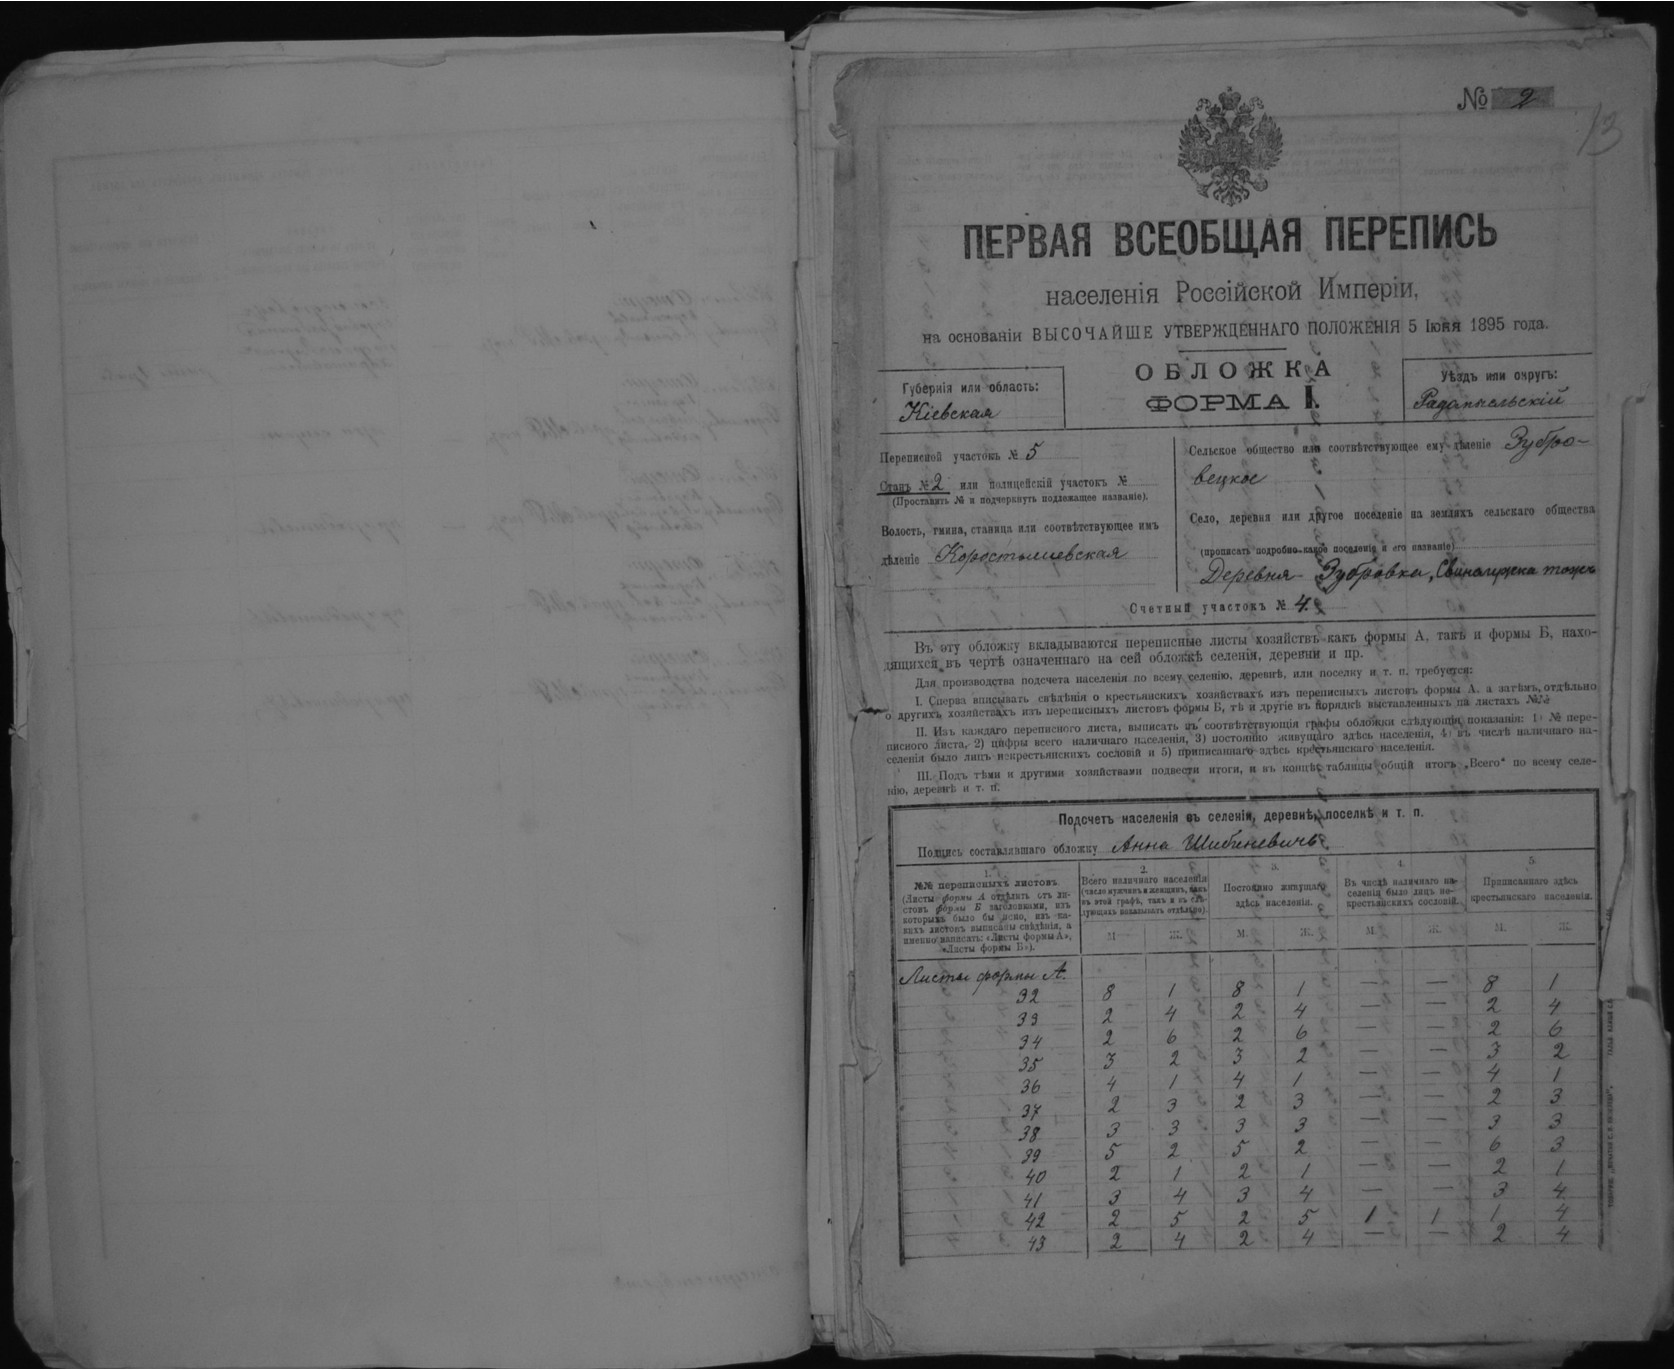 № 2
13
ПЕРВАЯ ВСЕОБЩАЯ ПЕРЕПИСЬ
населенія Россійской Имперіи,
на основаніи ВЫСОЧАЙШЕ УТВЕРЖДЕННАГО ПОЛОЖЕНІЯ 5 Іюня 1895 года.
ОБЛОЖКА
ФОРМА I.
Губернія или область:
Кіевская
Уѣздъ или округъ:
Радомысльскій
Переписной участокъ № 5
Станъ № 2 или полицейскій участокъ №
(Проставить № и подчеркнуть подлежащее названіе).
Волость, гмина, станица или соотвѣтствующее имъ
дѣленіе Коростышевская
Сельское общество или соотвѣтствующее ему дѣленіе Зубро-
вецкое
Село, деревня или другое поселеніе на земляхъ сельскаго общества
(прописать подробно какое поселеніе и его названіе)
Деревня Зубровка, тожъ
Счетный участокъ № 4.
Въ эту обложку вкладываются переписные листы хозяйствъ какъ формы А, такъ и формы Б, нахо-
дящихся въ чертѣ означеннаго на сей обложкѣ селенія, деревни и пр.
Для производства подсчета населенія по всему селенію, деревнѣ, или поселку и т. п. требуется:
I. Сперва вписывать свѣдѣнія о крестьянскихъ хозяйствахъ изъ переписныхъ листовъ формы А, а затѣмъ, отдѣльно
о другихъ хозяйствахъ изъ переписныхъ листовъ формы Б, тѣ и другіе въ порядкѣ выставленныхъ на листахъ №№
II. Изъ каждаго переписного листа, выписать въ соотвѣтствующія графы обложки слѣдующія показанія: 1) № пере-
писного листа, 2) цифры всего наличнаго населенія, 3) постоянно живущаго здѣсь населенія, 4) въ числѣ наличнаго на-
селенія было лицъ некрестьянскихъ сословій и 5) приписаннаго здѣсь крестьянскаго населенія.
III. Подъ тѣми и другими хозяйствами подвести итоги, и въ концѣ таблицы общій итогъ „Всего“ по всему селе-
нію, деревнѣ и т. п.
Подсчетъ населенія въ селеніи, деревнѣ, поселкѣ и т. п.
Подпись составлявшаго обложку Анна
1.
№№ переписныхъ листовъ.
(Листы формы А отдѣлить отъ ли-
стовъ формы Б заголовками, изъ
которыхъ было бы ясно, изъ ка-
кихъ листовъ выписаны свѣдѣнія, а
именно написать: «Листы формы А»,
«Листы формы Б»).
2.
Всего наличнаго населенія
(число мужчинъ и женщинъ, какъ
въ этой графѣ, такъ и въ слѣ-
дующихъ показывать отдѣльно).
3.
Постоянно живущаго
здѣсь населенія.
4.
Въ числѣ наличнаго на-
селенія было лицъ не-
крестьянскихъ сословій.
5.
Приписаннаго здѣсь
крестьянскаго населенія.
М. Ж. М. Ж. М. Ж. М. Ж.
Листы формы А.
32 8 1 8 1 — — 8 1
33 2 4 2 4 — — 2 4
34 2 6 2 6 — — 2 6
35 3 2 3 2 — — 3 2
36 4 1 4 1 — — 4 1
37 2 3 2 3 — — 2 3
38 3 3 3 3 — — 3 3
39 5 2 5 2 — — 6 3
40 2 1 2 1 — — 2 1
41 3 4 3 4 — — 3 4
42 2 5 2 5 1 1 1 4
43 2 4 2 4 — — 2 4